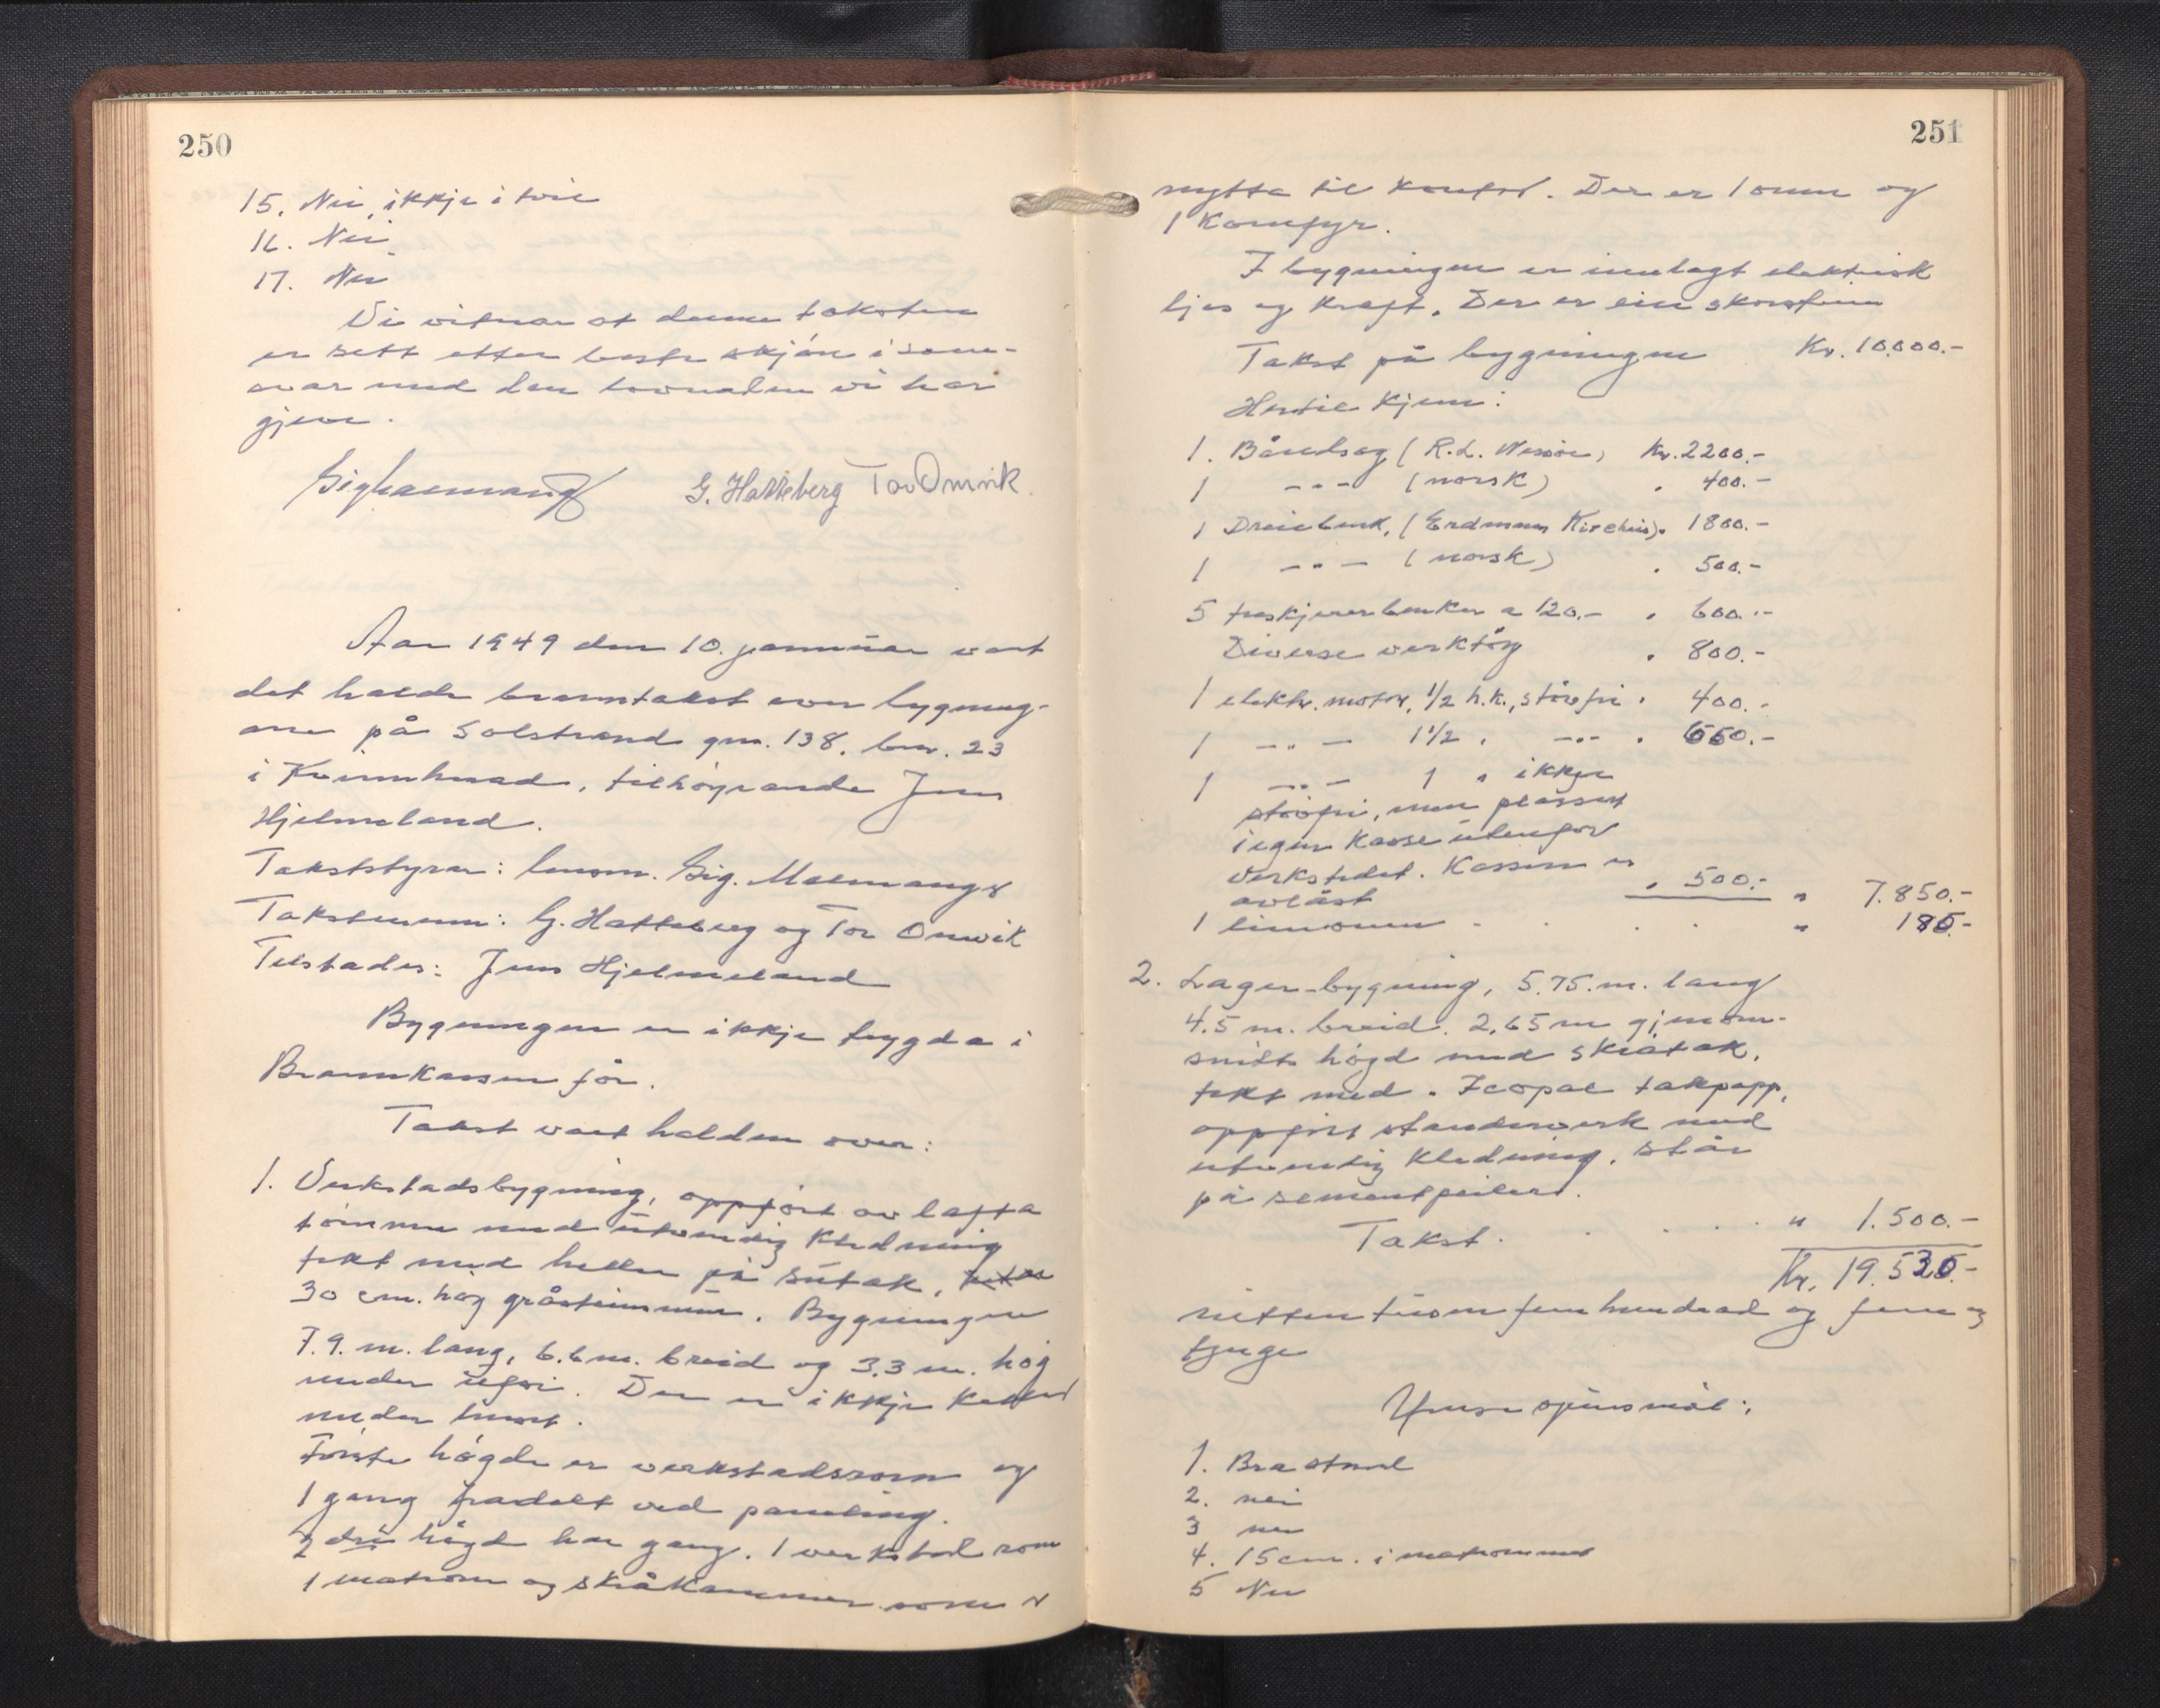 250
15. Nei, ikkje i tvil
16. Nei
17. Nei
Vi vitnar at denne taksten
er sett etter beste skjön i sam-
svar med den lovnaden vi har
gjeve.
G. Hatteberg Tor Omvik
Aar 1949 den 10. januar vart
det halde branntakst over bygning-
ane på Solstrand gnr. 138, bnr. 23
i Kvinnherad, tilhøyrande Jens
Hjelmeland.
Takststyrar: lensm. Sig. Malmanger
Takstmenn: G. Hatteberg og Tor Omvik
Tilstades: Jens Hjelmeland
Bygningen er ikkje trygda i
Brannkassen för.
Takst vart halden over:
1. Verkstadsbygning, oppfört av lafta
tömmer med utvendig kledning
tekt med heller på sutak,
30 cm. høg gråsteinsmur. Bygningen
7.9. m. lang, 6.6 m. breid og 3.3 m. høg
under ufsi. Der er ikkje keller
under huset.
Förste högde er verkstadsrom og
1 gang fradelt ved paneling.
2 dre högde har gang. 1 verkstad rom
1 matrom og skråkammer som er
251
nytta til kontor. Der er 1 omn og
1 Komfyr.
I bygningen er innlagt elektrisk
ljos og kraft. Der er ein skorstein
Takst på bygningen Kr. 10.000.-
Hertil kjem:
1. Båndsag (R.L. ) Kr. 2200.-
1 -"- (norsk) " 400.-
1 Dreiebenk, (Erdmann Kircheis) " 1800.-
1 -"- (norsk) " 500.-
5 treskjererbenker a 120.- " 600.-
Diverse verktöy " 800.-
1 elektr. motor, 1/2 h.k., stövfri " 400.-
1 -"- 1 1/2 " -"- " 650.-
1 -"- 1 " ikkje
stövfri, men plassert
i eigen kasse utenfor
verkstedet. Kassen er
avlåst " 500.- " 7.850.-
1 limomn " 185.-
2. Lager-bygning, 5.75. m. lang
4.5 m. breid. 2,65 m gjenom-
snitts högd med skråtak,
tekt med. Icopal takpapp,
oppfört standerverk med
utvendig kledning. Står
på sementpeilarar.
Takst. " 1.500.-
Kr. 19.535.-
nitten tusen fem hundrad og fem og
tjuge
Ymse spursmål:
1. Bra stand
2. nei
3 nei
4. 15 cm. i matrommet
5 Nei